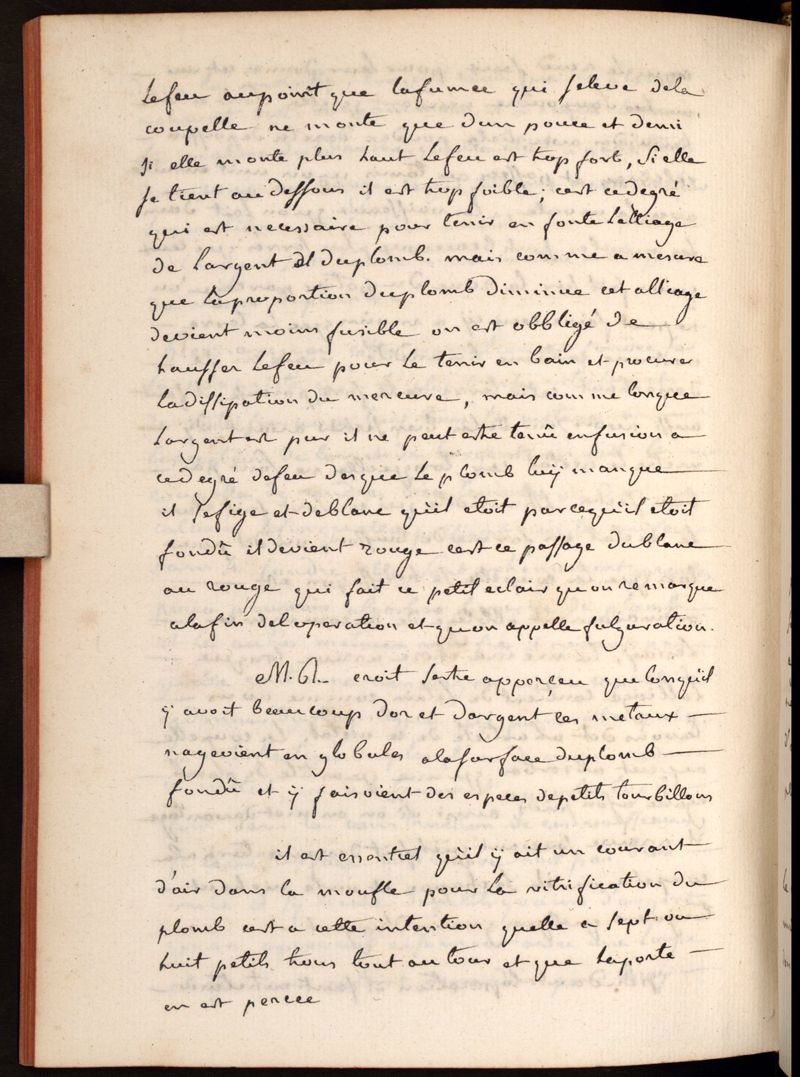 Lefeu aupoint que lafumee qui seleve dela
coupelle ne monte que dun pouce et demi
si elle monte plus haut Lefeu est trop fort, si elle
se tient au dessous il est trop foible; cest cedegré
qui est necessaire pour tenir en fonte Lalliage
de Largent et duplomb. mais comme a mesure
que Laproportion duplomb diminue cet alliage
devient moins fusible on est obbligé de
hausser Lefeu pour Le tenir en bain et procurer
Ladissipation du mercure, mais comme lorsque
Largent est pur il ne peut estre tenû enfusion a
cedegré defeu desque Le plomb luÿ manque
il sefige et deblanc quil etoit parcequil etoit
fondû il devient rouge cest ce passage dublanc
au rouge qui fait ce petit eclair quon remarque
alafin del operation et quon appelle fulguration.
M. R. croit sestre apperçeu que lorsquil
ÿ avoit beaucoup dor et dargent ces metaux
nageoient en globules alasurface duplomb
fondû et ÿ faisoient des especes depetits tourbillons
il est essentiel quil ÿ ait un courant
d'air dans la moufle pour La vitrification du
plomb cest a cette intention quelle a sept ou
huit petits trous tout autour et que Laporte
en est percee